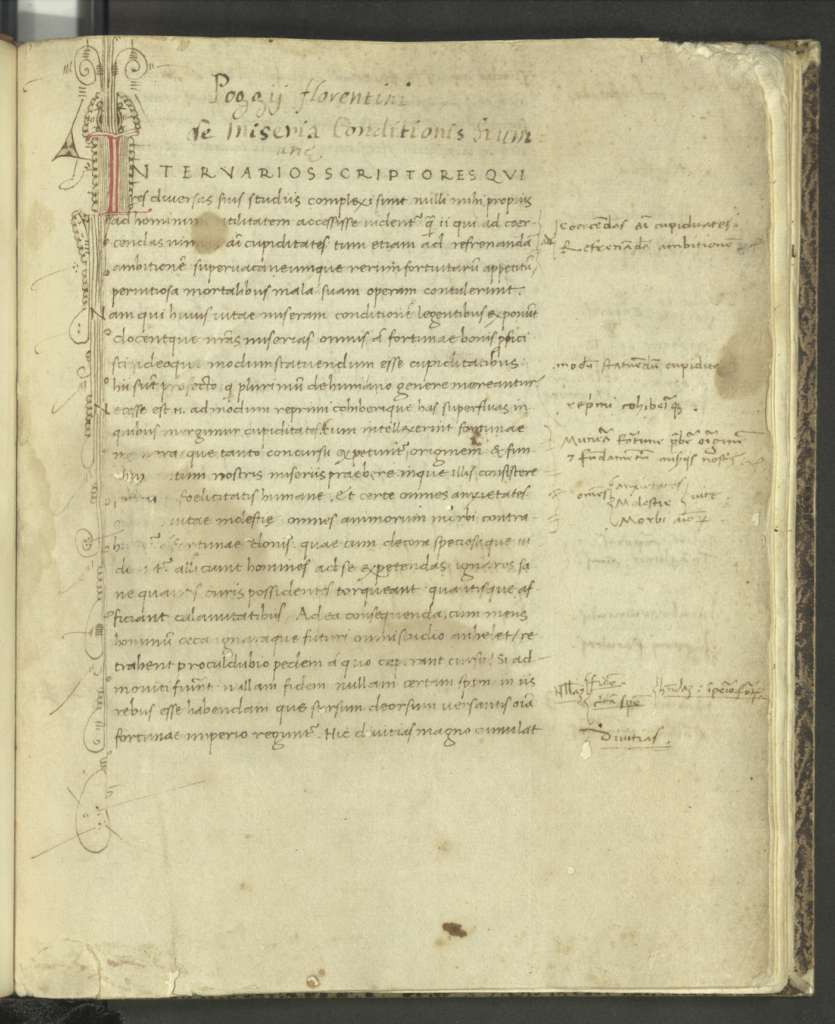 Poggij florentini
de Miseria Conditionis hum
ane
INTER VARIOS SCRIPTORES QVI
res diversas suis studiis complexi sunt nulli mihi propius
ad hominum utilitatem accessisse uident' q̃ ii qui ad coer-
cendas aĩ cupiditates tum etiam ad refrenandã
ambitionẽ supervacaneumque rerum fortuitarũ appetitũ,
pernitiosa mortalibus mala suam operam contulerunt.
Nam qui huius uitae miseram conditionẽ legentibus exponũt
docentque nr̃as miserias omnis à fortunae bonis p̱fici
sci, ideoque modum statuendum esse cupiditatibus.
hii sunt profecto q̇ plurimũ de humano genere mereantur
Necesse est .n. admodum reprimi cohiberique has superfluas in
quibus mergimur cupiditates, cum intellexerint fortunae
que tanto concursu expetunt', originem & fun
tum nostris miseriis praebere, inque illis consistere
foelicitatis humane. Et certe omnes anxietates
uitae molestie omnes animorum morbi contra
fortunae donis. quae cum decora speciosaque
alliciunt homines ad se expetendas ignaros sa
ne quantis curis possidentes torqueant quantisque af
ficiant calamitatibus. Ad ea consequenda, cum mens
hominũ ceca ignaraque futuri omni studio anhelet, re
trahent proculdubio pedem à quo ceperant cursu. Si ad-
moniti fuerint nullam fidem nullam certam spem in iis
rebus esse habendam que sursum deorsum uersantis oĩa
fortunae imperio regunt'. Hic diuitias magno cumulat
coercendas aĩ cupiditates.
Refrenãda ambitionẽ
modũ statuendũ cupidita
reprimi cohiberiq̃.
Munera fortune p̱bẽ originem
& fundamẽtũ miseriis nostris
omnes anxietates
Molestie uite
Morbi aĩor̃
Nullaz fidem
certã spẽ
Diuitias.